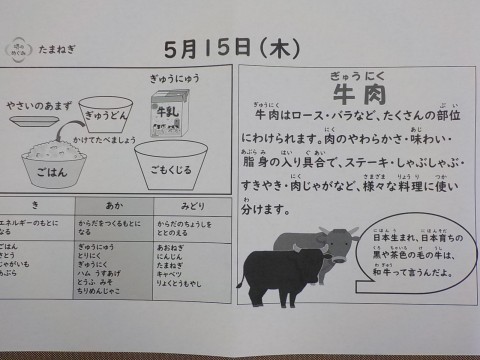 旬のめぐみ
たまねぎ
5月15日(木)
ぎゅうにゅう
やさいのあまず
ぎゅうどん
牛乳
かけてたべましょう
ごはん
ごもくじる
き
あか
みどり
エネルギーのもとに
なる
からだをつくるもとに
なる
からだのちょうしを
ととのえる
ごはん
さとう
じゃがいも
あぶら
ぎゅうにゅう
とりにく
ぎゅうにく
ハム うすあげ
とうふ みそ
ちりめんじゃこ
あおねぎ
にんじん
たまねぎ
キャベツ
りょくとうもやし
ぎゅうにく
牛肉
ぎゅうにく ぶい
牛肉はロース・バラなど、たくさんの部位
にく あじ
にわけられます。肉のやわらかさ・味わい・
あぶらみ はい ぐあい
脂身の入り具合で、ステーキ・しゃぶしゃぶ・
にく さまざま りょうり つか
すきやき・肉じゃがなど、様々な料理に使い
わ
分けます。
にほんう にほんそだ
日本生まれ、日本育ちの
くろ ちゃいろ け うし
黒や茶色の毛の牛は、
わぎゅう い
和牛って言うんだよ。